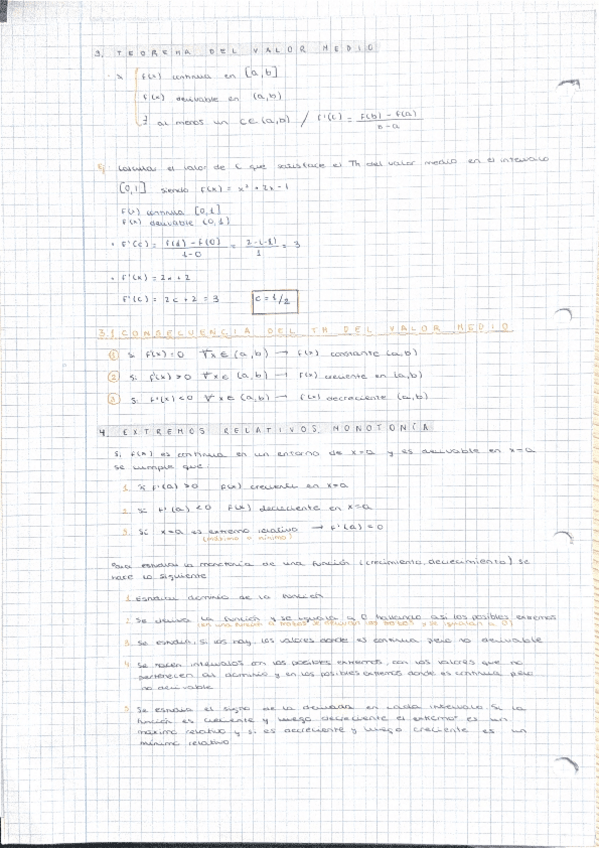 3. TEOREMA DEL VALOR MEDIO
Si f(x) continua en [a,b]
f(x) derivable en (a,b)
∃ al menos un c∈(a,b) / f'(c) = f(b) - f(a) / b-a
Ej: Calcula el valor de c que satisface el Th del valor medio en el intervalo
[0,1] siendo f(x) = x² + 2x - 1
f(x) continua [0,1]
f(x) derivable (0,1)
· f'(c) = f(1) - f(0) / 1-0 = 2-(-1) / 1 = 3
· f'(x) = 2x + 2
f'(c) = 2c + 2 = 3 c = 1/2
3.1 CONSECUENCIA DEL TH DEL VALOR MEDIO
① Si f'(x) = 0 ∀x ∈ (a,b) → f(x) constante (a,b)
② Si f'(x) > 0 ∀x ∈ (a,b) → f(x) creciente en (a,b)
③ Si f'(x) < 0 ∀x ∈ (a,b) → f(x) decreciente (a,b)
4. EXTREMOS RELATIVOS. MONOTONÍA
Si f(x) es continua en un entorno de x=a y es derivable en x=a
se cumple que:
1. Si f'(a) > 0 f(x) creciente en x=a
2. Si f'(a) < 0 f(x) decreciente en x=a
3. Si x=a es extremo relativo → f'(a) = 0
(máximo o mínimo)
Para estudiar la monotonía de una función (crecimiento, decrecimiento) se
hace lo siguiente
1. Estudiar dominio de la función
2. Se deriva la función y se iguala a 0 hallando así los posibles extremos
(en una función a trozos se derivan los trozos y se igualan a 0)
3. Se estudia, si los hay, los valores donde es continua pero no derivable
4. Se hacen intervalos con los posibles extremos, con los valores que no
pertenecen al dominio y en los posibles extremos donde es continua pero
no derivable
5. Se estudia el signo de la derivada en cada intervalo. Si la
función es creciente y luego decreciente el extremo es un
máximo relativo y si es decreciente y luego creciente es un
mínimo relativo